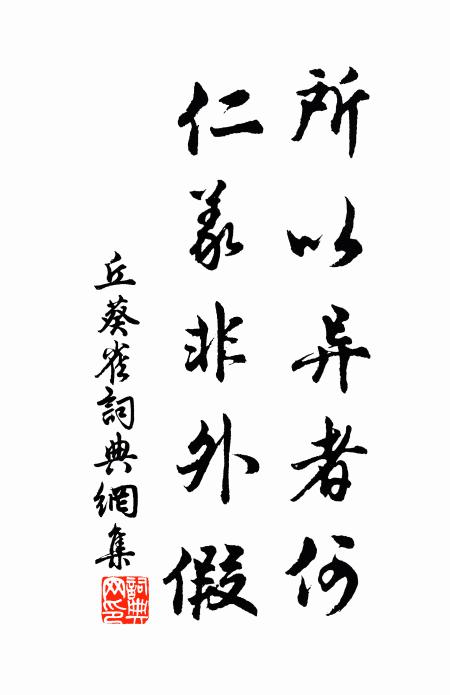 所以异者何
仁義非外假
丘葵雀詞典網集
詞典網印